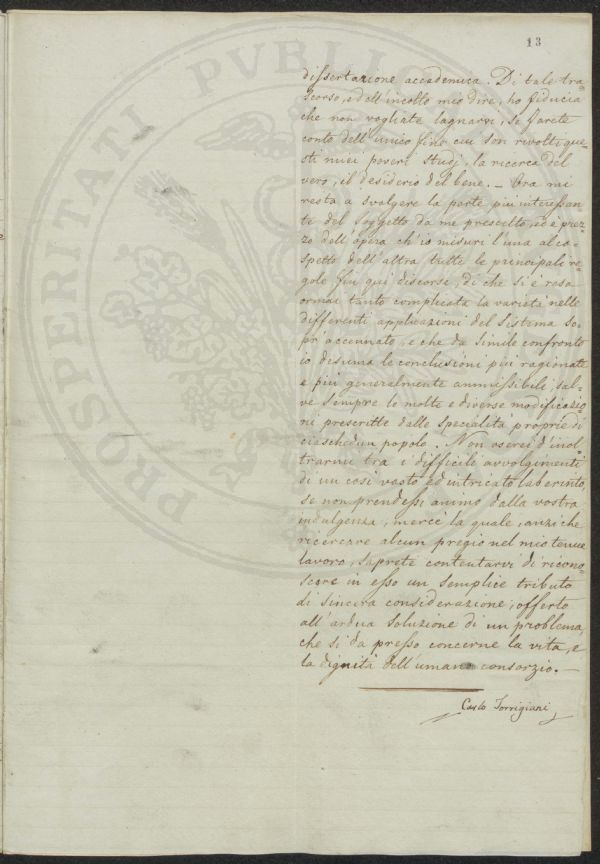 13
dissertazione accademica. Di tale tra-
scorso, e dell'incolto mio dire, ho fiducia
che non vogliate lagnarvi, se farete
conto dell'unico fine cui son rivolti que-
sti miei poveri studj, la ricerca del
vero, il desiderio del bene. — Ora mi
resta a svolgere la parte più interessan-
te del soggetto da me prescelto, ed è prez-
zo dell'opera ch'io misuri l'una al co-
spetto dell'altra tutte le principali re-
gole fin qui discorse, di che si è resa
ormai tanto complicata la varietà nelle
differenti applicazioni del sistema so-
pr'accennato, e che da simile confronto
io desuma le conclusioni più ragionate
e più generalmente ammissibili, sal-
ve sempre le molte e diverse modificazio-
ni prescritte dalle specialità proprie di
ciaschedun popolo. Non oserei d'inol-
trarmi tra i difficili avvolgimenti
di un così vasto ed intricato laberinto,
se non prendessi animo dalla vostra
indulgenza, mercè la quale, anzi che
ricercare alcun pregio nel mio tenue
lavoro, saprete contentarvi di ricono-
scere in esso un semplice tributo
di sincera considerazione, offerto
all'ardua soluzione di un problema,
che sì da presso concerne la vita, e
la dignità dell'umano consorzio. —
Carlo Torrigiani
PROSPERITATI PVBLICAE